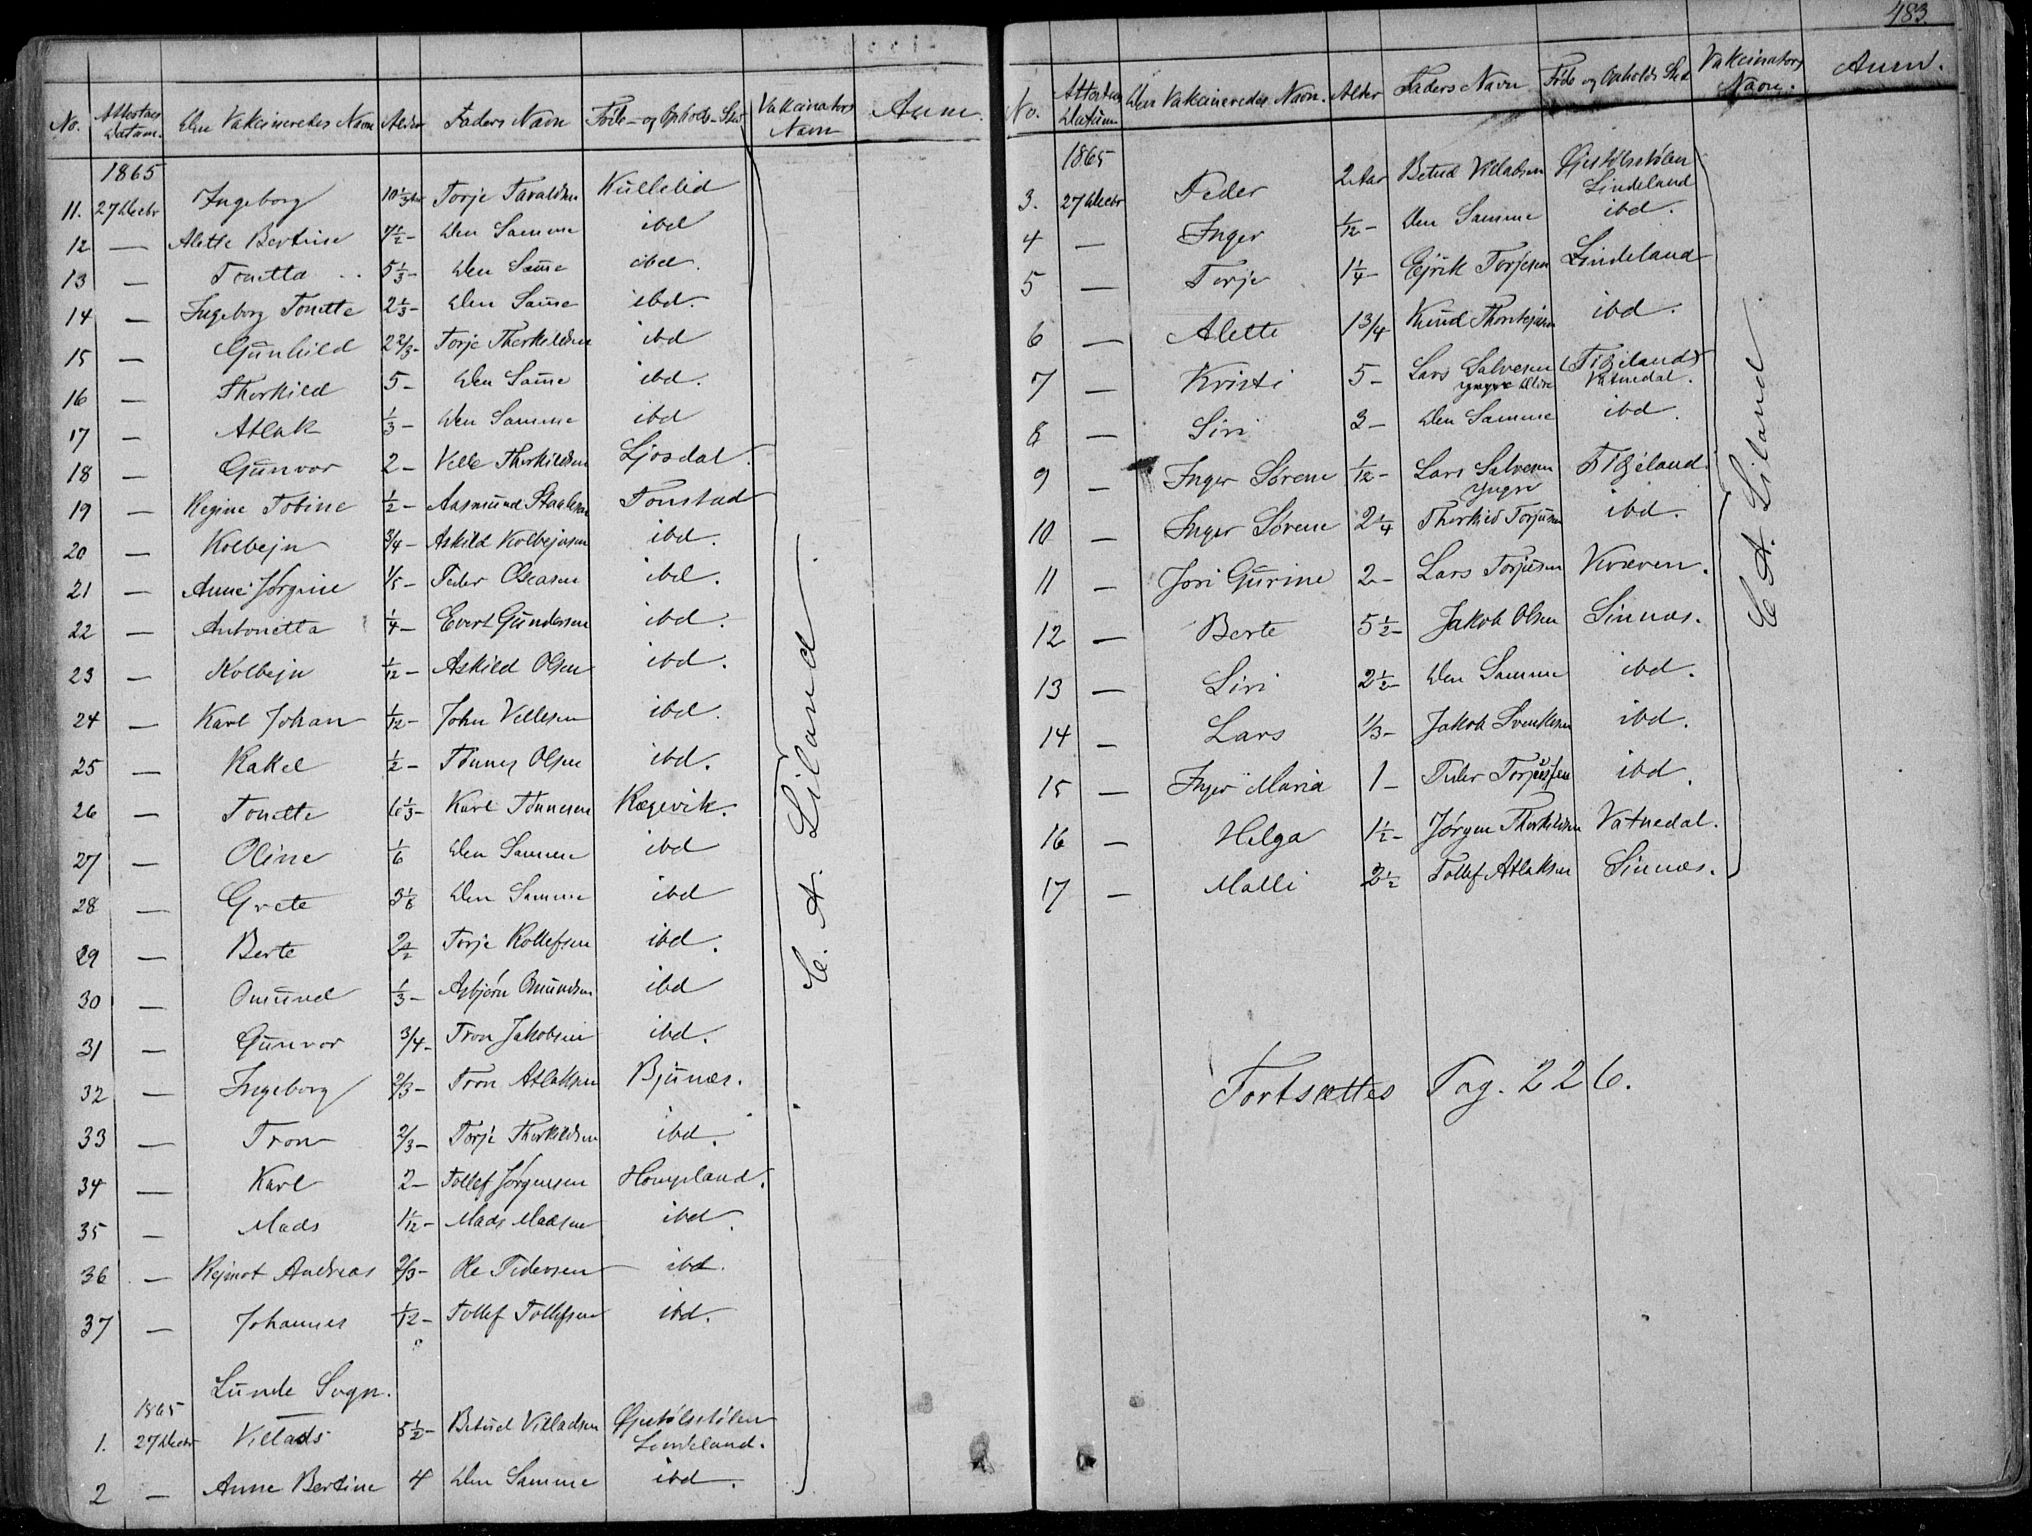 No. Attestats Datum. Den Vakcineredes Navn Alder Faders Navn Føde- og Opholds-Sted Vakcinators Navn Anm.
1865
11. 27 Decbr Ingeborg 10 1/3 Aar Torje Tavaldsen Kulleli​d
12 — Alette Bertine 7 1/2 - Den Samme ibd
13 — Tonetta 5 1/3 - Den Same ibd.
14 — Ingeborg Tonette 2 1/3 - Den Same ibd.
15 — Gunhild 2 2/3 - Torje Therkildsen ibd
16 — Therkild 5 - Den Same ibd.
17 — Atlak 1/3 - Den Samme ibd
18 — Gunvor 2 - Velle Therkildsen Ljosdal.
19 — Regine Tobine 1/2 - Aasmund Staalesen Tonstad
20 — Kolbejn 3/4 - Askild Kolbejnsen ibd.
21 — Anne Jørgine 1/5 - Peder Oseasen ibd.
22 — Antonetta 1/4 - Evert Gundersen ibd.
23 — Kolbejn 1/12 - Askild Olsen ibd.
24 — Karl Johan 1/12 - John Vellesen ibd.
25 — Rakel 1/2 - Tønnes Olsen ibd.
26 — Tonette 6 1/3 - Karl Tønnesen Rægevik.
27 — Oline 1/6 Den Samme ibd
28 — Grete 3 1/8 Den Samme ibd
29 — Berte 2 1/2 Torje Rollefsen ibd.
30 — Omund 1/3 - Asbjørn Omundsen ibd
31 — Gunvor 3/4 - Tron Jakobsen ibd.
32 — Ingeborg 2/3 - Tron Atlaksen Bjunæs.
33 — Tron 2/3 - Torje Therkildsen ibd.
34 — Karl 2 - Tollef Jørgensen Hompland.
35 — Mads 1/12 - Mads Madsen ibd.
36 — Rejnot Andreas 2/3 - Ole Pedersen ibd.
37 — Johannes 1/12 - Tollef Tollefsen ibd.
Lunde Sogn.
1865
1. 27 Decbr Villads 5 1/2 - Betuel Villadsen Øjestølsstølen
Lindeland.
2 — Anne Bertine 4 Den Samme ibd.
E. A. Liland
483.
No. Attestats Datum Den Vakcineredes Navn. Alder Faders Navn Føde og Opholds Sted Vakcinators Navn. Anm.
1865
3. 27 Decbr Peder 2 Aar Betuel Villadsen Øjestølsstølen
Lindeland
4 — Inger 1/12 - Den Samme ibd.
5 — Torje 1 1/4 - Ejrik Torjesen Lindeland
6 — Alette 1 3/4 Knud Thorkejsen ibd.
7 — Kristi 5 - Lars Salvesen
Vatnedal.
8 — Siri 3 - Den Samme ibd.
9 — Inger Sørene 1/12 - Lars Salvesen
yngre
10 — Inger Sørene 2 1/4 Therkild Torjusen ibd.
11 — Jori Gurine 2 - Lars Torjusen Kvæven.
12 — Berte 5 1/2 - Jakob Olsen Sinnæs.
13 — Siri 2 1/2 - Den Samme ibd.
14 — Lars 1/3 - Jakob Svenksen ibd.
15 — Inger Maria 1 - Peder Torjussen ibd.
16 — Helga 1 1/2 - Jørgen Therkildsen Vatnedal.
17 — Malli 2 1/2 Tollef Atlaksen Sinnæs.
E A. Liland
Fortsættes Pag. 226.